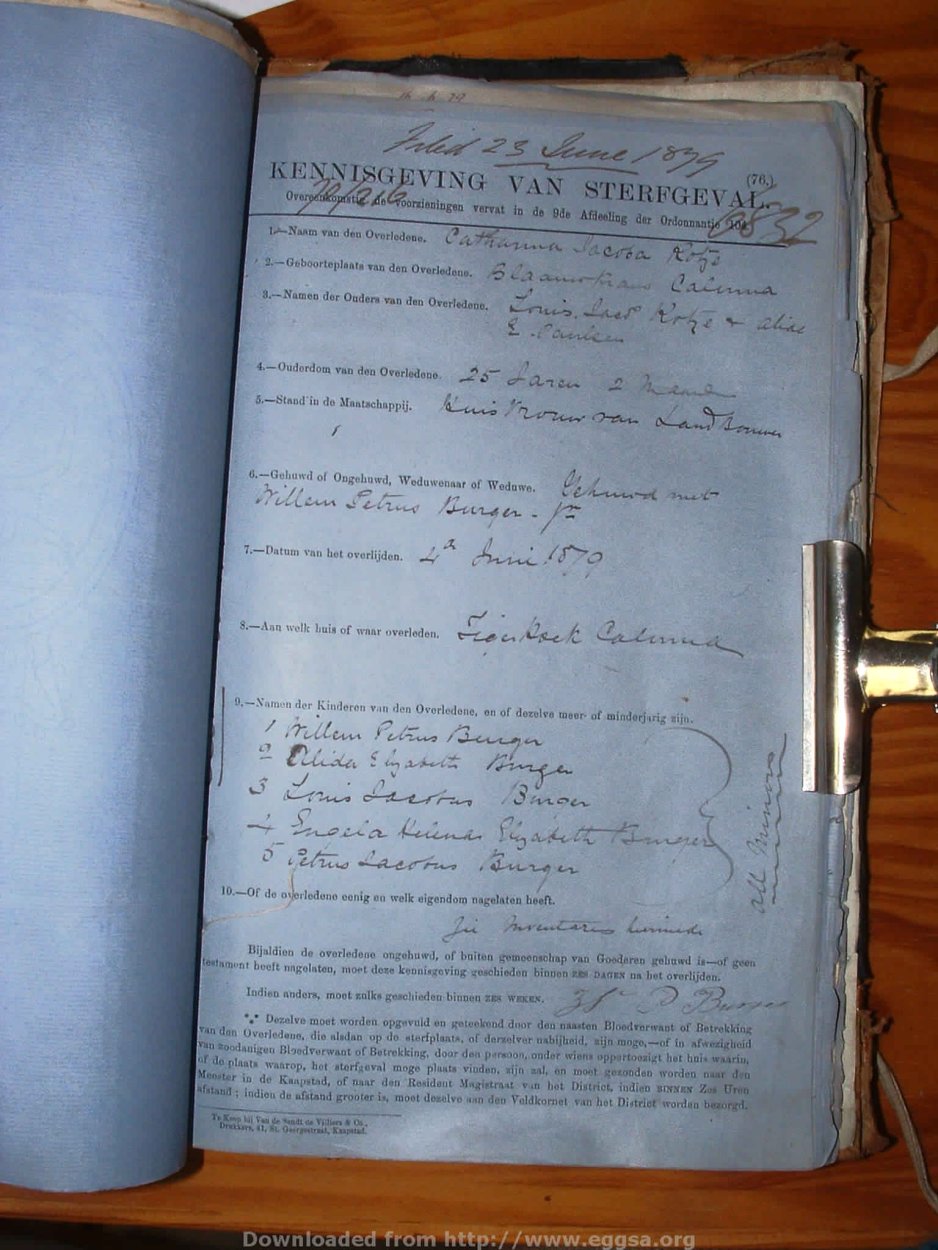 Filed 23 June 1879
(76.)
KENNISGEVING VAN STERFGEVAL.
Overeenkomstig de voorzieningen vervat in de 9de Afdeeling der Ordonnantie 104.
1.—Naam van den Overledene. Catharina Jacoba Kotze
2.—Geboorteplaats van den Overledene. Blaauwkrans Calvinia
3.—Namen der Ouders van den Overledene. Louis Jacs Kotze &
E. Paulsen
4.—Ouderdom van den Overledene. 25 Jaren 2 Maand
5.—Stand in de Maatschappij. Huisvrouw van Landbouwer
6.—Gehuwd of Ongehuwd, Weduwenaar of Weduwe. Gehuwd met
Willem Petrus Burger - jr
7.—Datum van het overlijden. 4 Juni 1879
8.—Aan welk huis of waar overleden. Tigerhoek Calvinia
9.—Namen der Kinderen van den Overledene, en of dezelve meer- of minderjarig zijn.
1 Willem Petrus Burger
2 Alida Elizabeth Burger
3 Louis Jacobus Burger
4 Engela Helena Elizabeth Burger
5 Petrus Jacobus Burger
all Minors
10.—Of de overledene eenig en welk eigendom nagelaten heeft.
Zie Inventaris hiermede
Bijaldien de overledene ongehuwd, of buiten gemeenschap van Goederen gehuwd is—of geen
testament heeft nagelaten, moet deze kennisgeving geschieden binnen ZES DAGEN na het overlijden.
Indien anders, moet zulks geschieden binnen ZES WEKEN. P Burger
*** Dezelve moet worden opgevuld en geteekend door den naasten Bloedverwant of Betrekking
van den Overledene, die alsdan op de sterfplaats, of derzelver nabijheid, zijn moge,—of in afwezigheid
van zoodanigen Bloedverwant of Betrekking, door den persoon, onder wiens oppertoezigt het huis waarin,
of de plaats waarop, het sterfgeval moge plaats vinden, zijn zal, en moet gezonden worden naar den
Meester in de Kaapstad, of naar den Resident Magistraat van het District, indien BINNEN Zes Uren
afstand; indien de afstand grooter is, moet dezelve aan den Veldkornet van het District worden bezorgd.
Te Koop bij Van de Sandt de Villiers & Co.,
Drukkers, 41, St. Georgestraat, Kaapstad.
Downloaded from http://www.eggsa.org